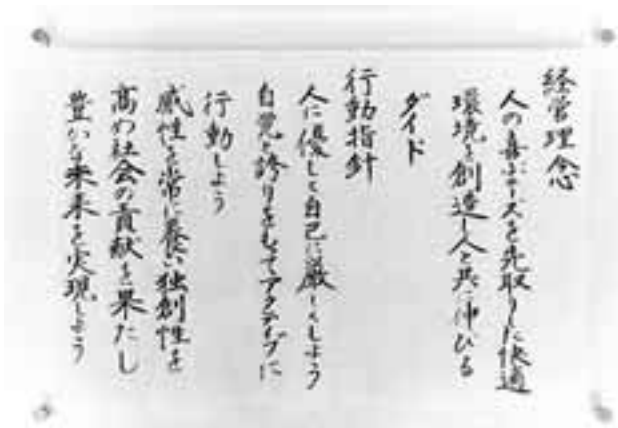 経営理念
人の喜ぶニーズを先取りした快適
環境を創造し人と共に伸びる
ダイド
行動指針
人に優しく自己に厳しくしよう
自覚と誇りをもってアクティブに
行動しよう
感性を常に養い独創性を
高め社会の貢献を果たし
豊かな未来を実現しよう